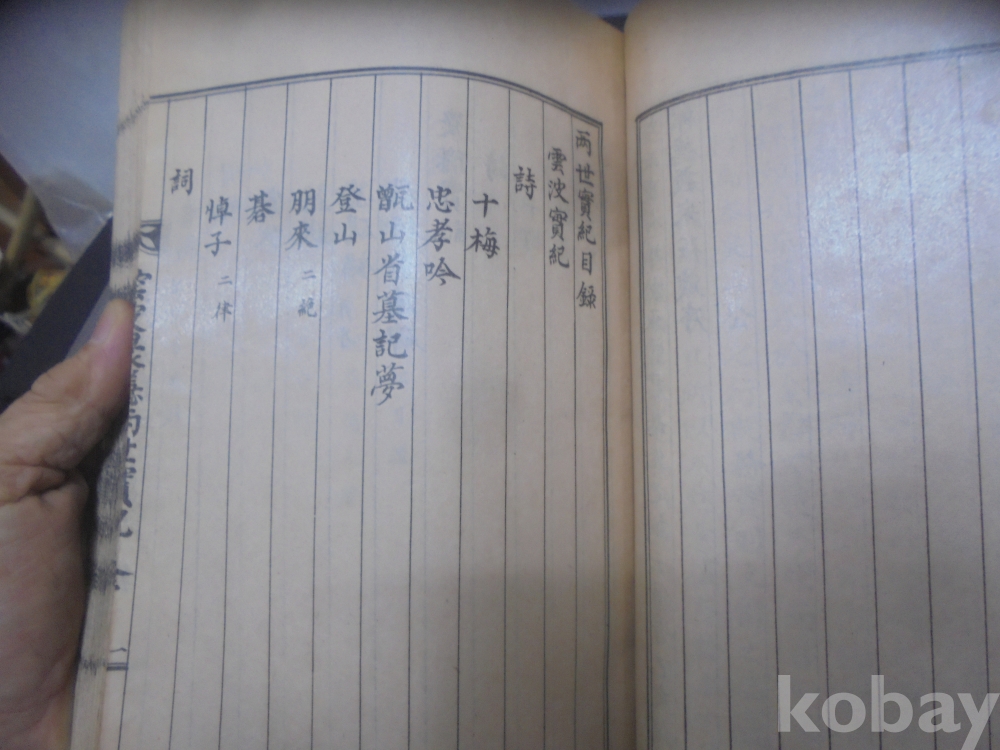 兩世實紀目錄
雲沙實紀
詩
十梅
忠孝吟
甑山省墓記夢
登山
朋來 二絶
碁
悼子 二律
詞
兩世實紀 全
一
kobay